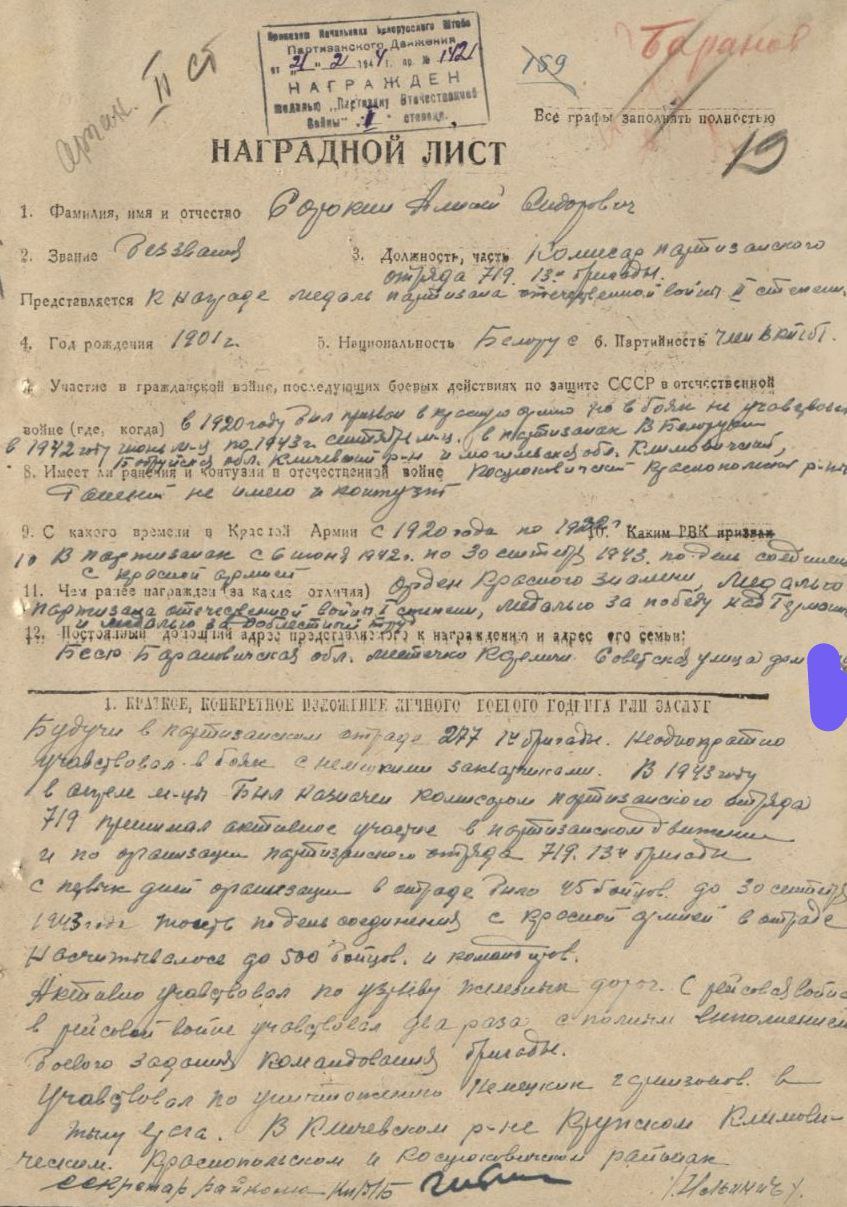 Приказом Начальника Белорусского Штаба
Партизанского Движения
от "21" 2 194 г. пр. № 1421
НАГРАЖДЕН
медалью "Партизану Отечественной
Войны" "I" степени.
II ст
159
Баранов
Все графы заполнять полностью
19
НАГРАДНОЙ ЛИСТ
1. Фамилия, имя и отчество Сидорович
2. Звание Беззвания 3. Должность, часть Комисар партизанского
отряда 719. 13й бригады.
Представляется К награде медаль партизана отечественной войны II степени.
4. Год рождения 1901 г. 5. Национальность Белорус 6. Партийность член ВКП(б).
7. Участие в гражданской войне, последующих боевых действиях по защите СССР в отечественной
войне (где, когда) в 1920 году был призван в красную армию но в боях не учавствовал
в 1942 году июнь м-ц по 1943 г. сентябрь м-ц. в партизанах В Белорусии
Бобруйская обл. Кличевский р-н и могилевская обл. Климовичский,
8. Имеет ли ранения и контузии в отечественной войне Костюковичский Краснопольский р-н
Ранений не имею и контузий
9. С какого времени в Красной Армии с 1920 года по 10. Каким РВК призван
10 В партизанах с 6 июня 1942 г. по 30 сентябр 1943. по день соединения
с красной армией
11. Чем ранее награжден (за какие отличия) орден Красного знамени, медалью
партизана отечественной войны I степени, медалью за победу над Германией
и медалью за доблестный труд
12. Постоянный домашний адрес представляемого к награждению и адрес его семьи:
БССР Барановичская обл. местечко Кореличи Советская улица дом
1. КРАТКОЕ, КОНКРЕТНОЕ ИЗЛОЖЕНИЕ ЛИЧНОГО БОЕВОГО ПОДВИГА ИЛИ ЗАСЛУГ
Будучи в партизанском отряде 277 14 бригады. Неоднократно
учавствовал в боях с немецкими захватчиками. В 1943 году
в апреле м-цы Был назначен комисаром партизанского отряда
719 принимал активное участие в партизанском движении
и по организации партизанского отряда 719. 13й бригады
с первых дней организации в отряде было 45 бойцов. до 30 сентября
1943 года тоесть по день соединения с красной армией в отряде
насчитывалось до 500 бойцов. и командиров.
Активно учавствовал по взрыву железных дорог. С рейсовая война
в рейсовой войне учавствовал два раза с полным выполнением
боевого задания командования бригады.
Учавствовал по уничтожению Немецких гарнизонов. в
тылу врага. В Кличевском р-не Крупском Климови-
ческом. Краснопольском и Костюковичском районах
секретар райкома КП(б)Б /Ильинич/.